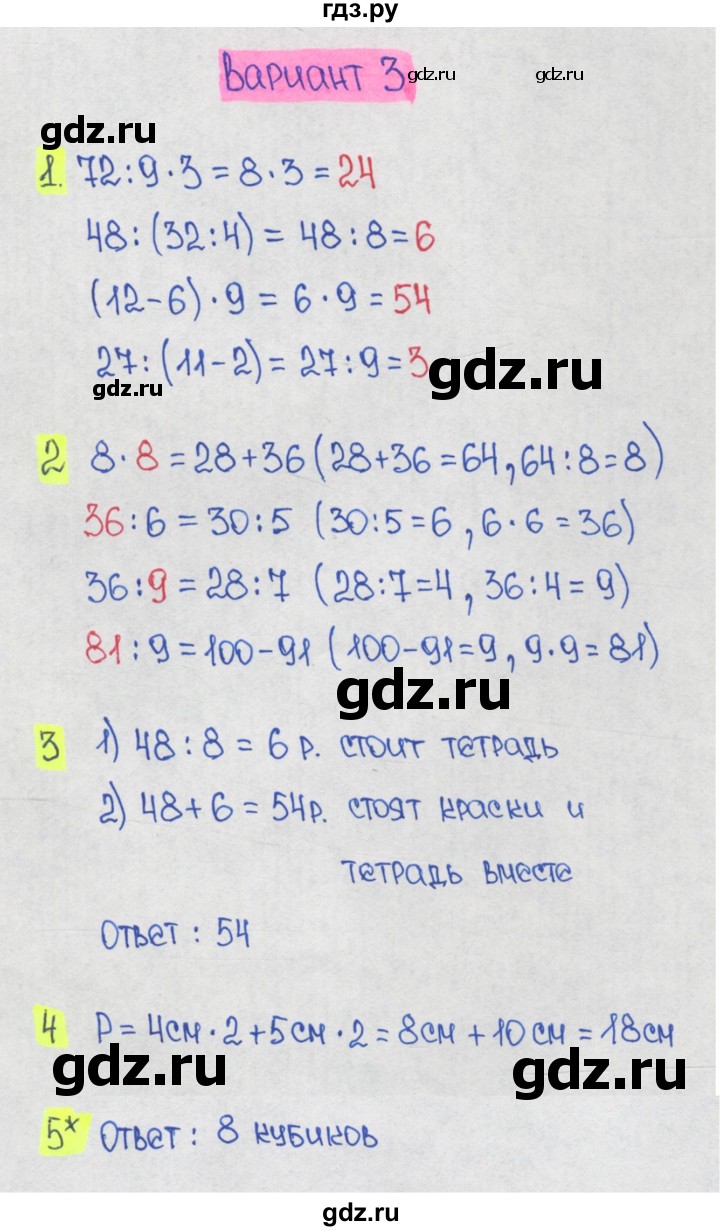 гдз.ру
Вариант 3
gdz.ru gdz.ru
gdz.ru
1. 72:9·3=8·3=24
48:(32:4)=48:8=6
(12-6)·9=6·9=54
27:(11-2)=27:9=3
gdz.ru
gdz.ru
2 8·8=28+36(28+36=64,64:8=8)
36:6=30:5 (30:5=6,6·6=36)
36:9=28:7 (28:7=4,36:4=9)
81:9=100-91 (100-91=9,9·9=81)
gdz.ru
3 1) 48:8=6 р. стоит тетрадь
2) 48+6=54р. стоят краски и
тетрадь вместе
Ответ: 54
4 P=4см·2+5см·2=8см+10см=18см
gdz.ru gdz.ru
5* Ответ: 8 кубиков
gdz.ru